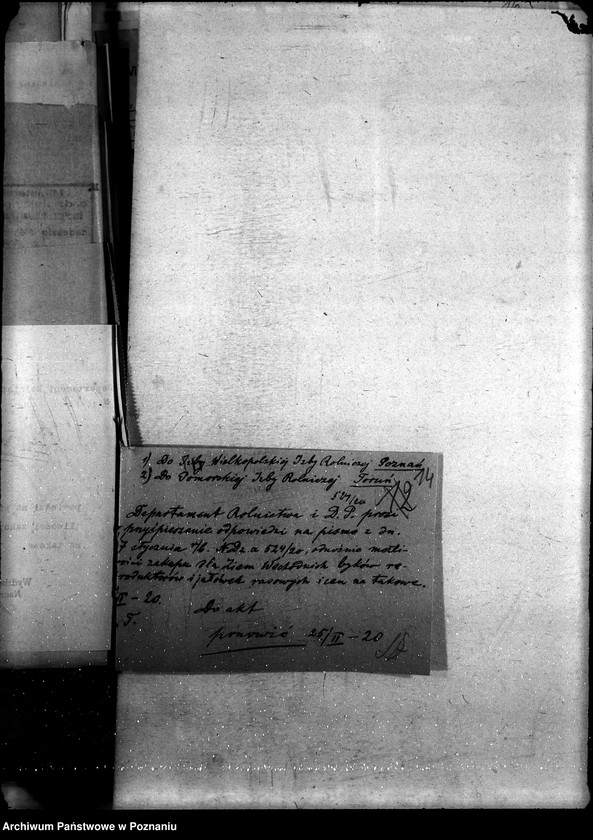 14
1) Do Izby Wielkopolskiej Izby Rolniczej Poznań
2) Do Pomorskiej Izby Rolniczej Toruń
521/20
12
Departament Rolnictwa i D. P. prosi
przyśpieszenie odpowiedzi na pismo z dn.
7 stycznia N.Dz. a 524/20, odnośnie możli-
zakupu dla Ziem Wschodnich byków re-
produktorów i jałówek rasowych i cen na takowe.
II - 20.
Do akt
T.
ponowić 25/II - 20
Archiwum Państwowe w Poznaniu